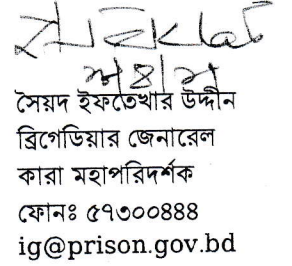 সৈয়দ ইফতেখার উদ্দীন
ব্রিগেডিয়ার জেনারেল
কারা মহাপরিদর্শক
ফোনঃ ৫৭৩০০৪৪৪
ig@prison.gov.bd